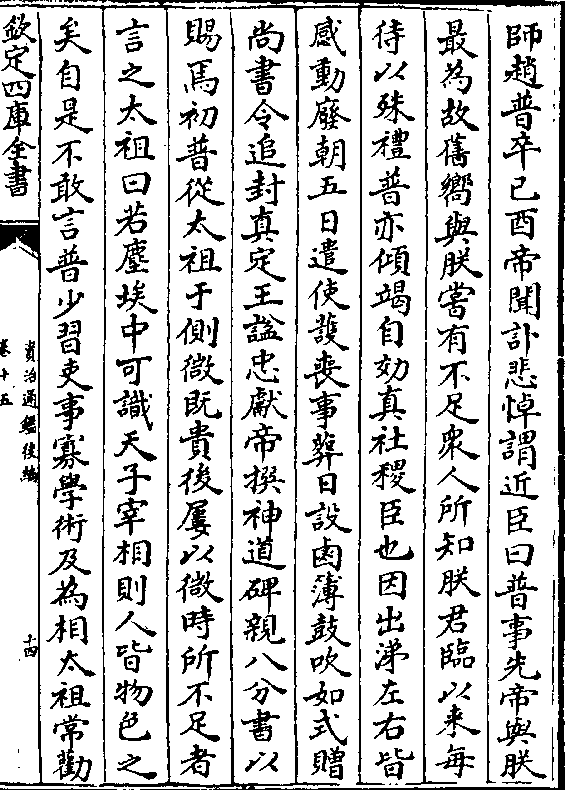 師趙普卒己酉帝聞訃悲悼謂近臣曰普事先帝與朕
最為故舊嚮與朕嘗有不足衆人所知朕君臨以来每
待以殊禮普亦傾竭自効真社稷臣也因出涕左右皆
感動廢朝五日遣使護喪事葬日設鹵薄鼓吹如式贈
尚書令追封真定王諡忠獻帝撰神道碑親八分書以
賜焉初普從太祖于側微既貴後屢以微時所不足者
言之太祖曰若塵埃中可識天子宰相則人皆物色之
矣自是不敢言普少習吏事寡學術及為相太祖常勸
欽定四庫全書
資治通鑑後編
卷十五
十四